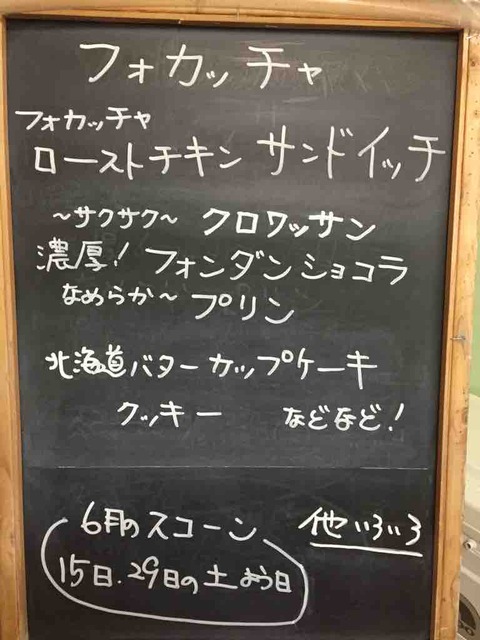 フォカッチャ
フォカッチャ
ローストチキン サンドイッチ
~サクサク~ クロワッサン
濃厚! フォンダンショコラ
なめらか~ プリン
北海道バターカップケーキ
クッキー などなど!
6月のスコーン
15日、29日の土よう日
他いろいろ